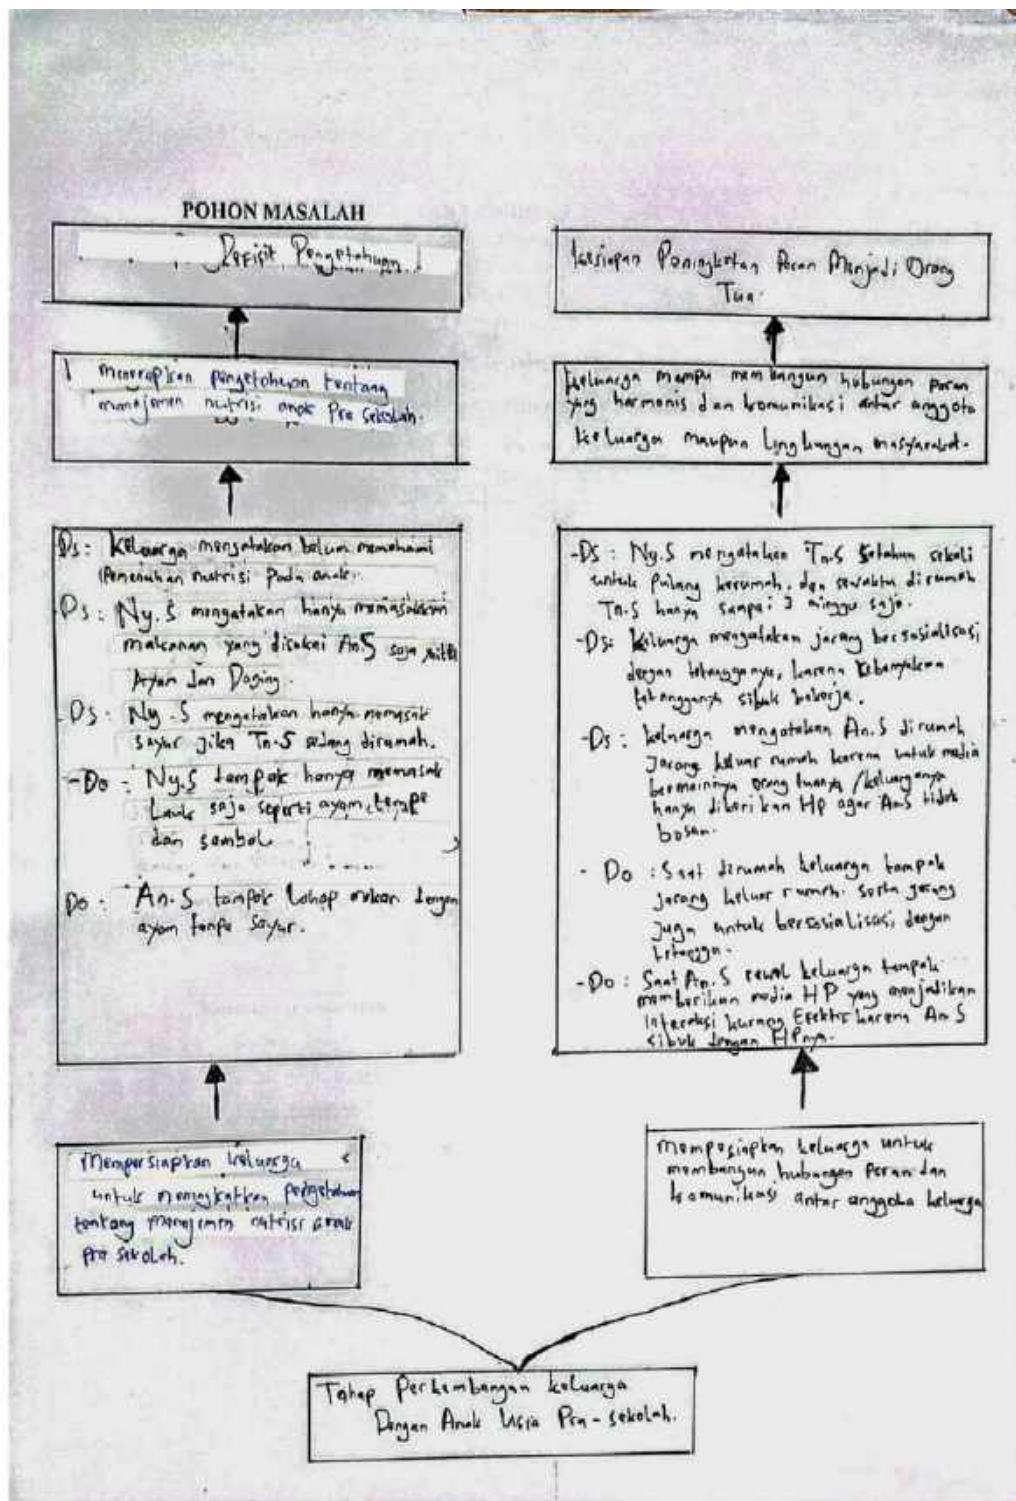 POHON MASALAH
Defisit Pengetahuan
menerapkan pengetahuan tentang
manajemen nutrisi anak Pra sekolah.
Ds: Keluarga mengatakan belum memahami
Pemenuhan nutrisi Pada anak.
Ds: Ny.S mengatakan hanya memasakkan
makanan yang disukai An.S saja
Ayam dan Daging.
-Ds: Ny.S mengatakan hanya memasak
sayur jika Tn.S sedang dirumah.
-Do: Ny.S tampak hanya memasak
Lauk saja seperti ayam, tempe
dan sambal
Do: An.S tampak lahap makan dengan
ayam tanpa sayur.
Mempersiapkan keluarga
untuk meningkatkan pengetahuan
tentang manajemen nutrisi anak
pra sekolah.
Kesiapan Peningkatan Peran Menjadi Orang
Tua.
Keluarga mampu membangun hubungan peran
yang harmonis dan komunikasi antar anggota
keluarga maupun lingkungan masyarakat.
-Ds: Ny.S mengatakan Tn.S setahun sekali
untuk pulang kerumah, dan sewaktu dirumah
Tn.S hanya sampai 3 minggu saja.
-Ds: Keluarga mengatakan jarang bersosialisasi
dengan tetangganya, karena kebanyakan
tetangganya sibuk bekerja.
-Ds: keluarga mengatakan An.S dirumah
jarang keluar rumah karena untuk media
bermainnya orang tuanya/keluarganya
hanya diberikan HP agar An.S tidak
bosan.
- Do: Saat dirumah keluarga tampak
jarang keluar rumah. serta jarang
juga untuk bersosialisasi dengan
tetangga.
-Do: Saat An.S rewel keluarga tampak
memberikan media HP yang menjadikan
Interaksi kurang Efektif karena An.S
sibuk dengan HPnya.
Mempesiapkan keluarga untuk
membangun hubungan peran dan
komunikasi antar anggota keluarga
Tahap Perkembangan keluarga
Dengan Anak Usia Pra-sekolah.